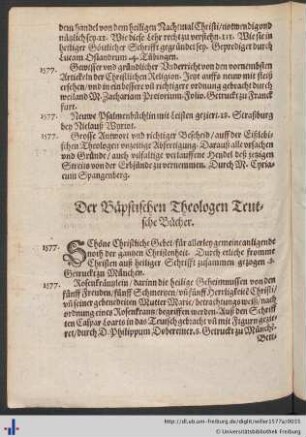 dem handel von dem heiligen Nachtmal Christi / notwendig vnd
nützlich sey. II. Wie diese Lehr recht zu verstehn. III. Wie sie in
heiliger Göttlicher Schrifft gegründet sey. Geprediget durch
Lucam Osiandrum. 4. Tübingen.
1577. Gewisser vnd gründtlicher Vnderricht von den vornembsten
Articfeln der Christlichen Religion. Jetzt auffs neuw mit fleiß
ersehen / vnd in ein besser vñ richtigere ordnung gebracht durch
weiland M. Zachariam Pretorium. Folio. Getruckt zu Franck
furt.
1577. Neuwe Psalmenbüchlin mit Leisten geziert. 12. Straßburg
bey Niclauß Wyriot.
1577. Grosse Antwort vnd richtiger Bescheid / auff der Eißlebi-
schen Theologen vnzeitige Abfertigung. Darauß alle vrsachen
vnd Gründe / auch vilfaltige verlauffene Hendel deß jetzigen
Streits von der Erbsünde zu vernemmen. Durch M. Cyria-
cum Spangenberg.
Der Bäpstischen Theologen Teut-
sche Bücher.
1577. SChöne Christliche Gebet für allerley gemeine anligende
noth der gantzen Christenheit. Durch etliche fromme
Christen auß heiliger Schrifft zusammen gezogen. 8.
Getruckt zu München.
1577. Rosenkräntzlein / darinn die heilige Geheimnussen von den
fünff Freuden / fünff Schmertzen / vñ fünff Herrligkeitẽ Christi /
vñ seiner gebenedeiten Mutter Marie / betrachtungs weiß / nach
ordnung eines Rosenkrantz / begriffen werden. Auß den Schriff
ten Caspar Loarts in das Teutsch gebracht vñ mit Figurn gezie-
ret / durch D. Philippum Dobereiner. 8. Getruckt zu München.
http://dl.ub.uni-freiburg.de/diglit/willer1577a/0035
© Universitätsbibliothek Freiburg